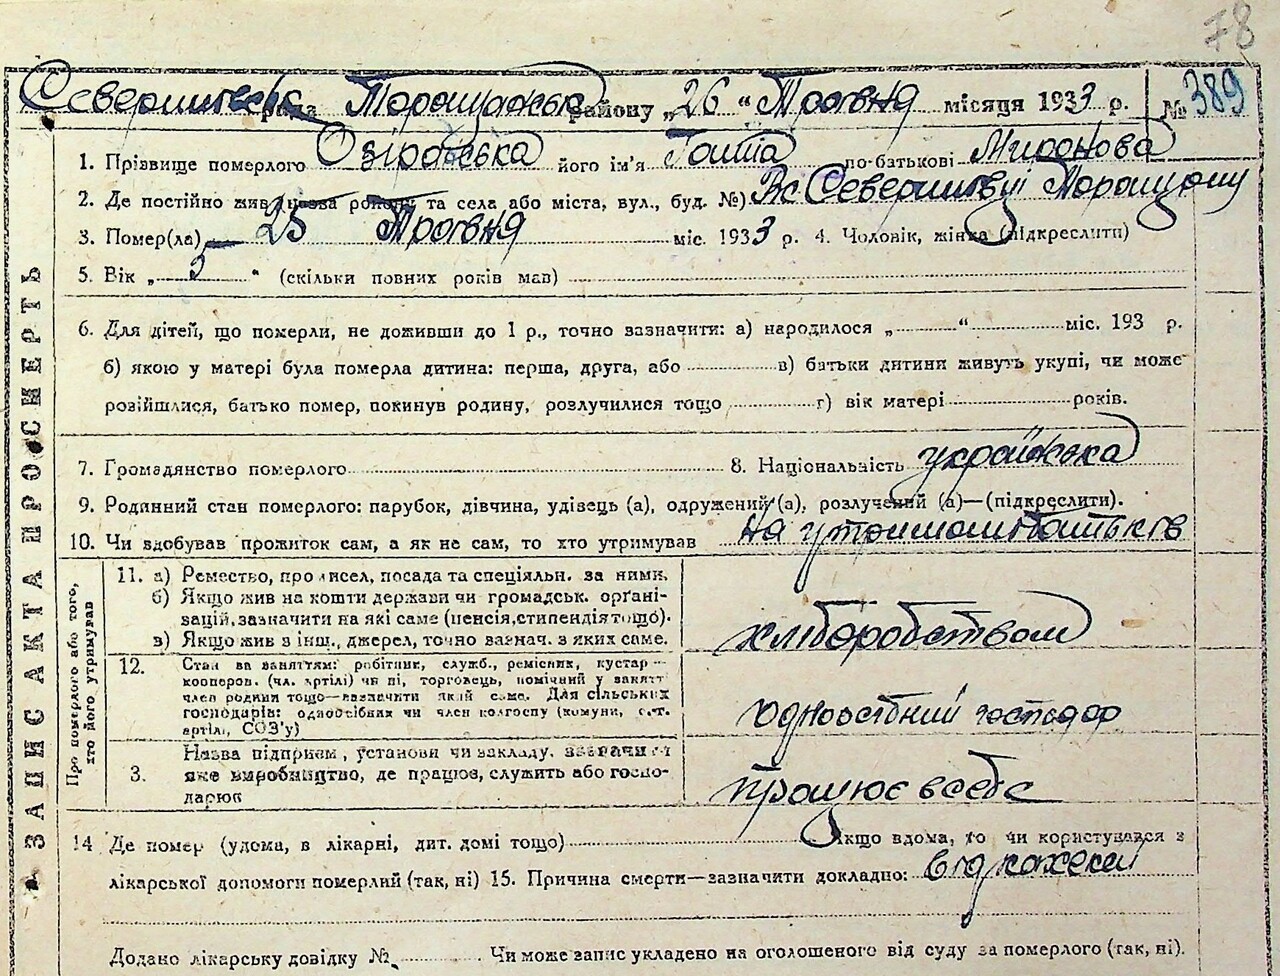 78
рада району „26“ Травня місяця 1933 р. № 389
1. Прізвище померлого його ім'я по-батькові Миронова
2. Де постійно жив (назва району та села або міста, вул., буд. №)
3. Помер(ла) 25 Травня міс. 1933 р. 4. Чоловік, жінка (підкреслити)
5. Вік „ 5 “ (скільки повних років мав)
6. Для дітей, що померли, не доживши до 1 р., точно зазначити: а) народилося „ “ міс. 193 р.
б) якою у матері була померла дитина: перша, друга, або в) батьки дитини живуть укупі, чи може
розійшлися, батько помер, покинув родину, розлучилися тощо г) вік матері років.
7. Громадянство померлого 8. Національність українська
9. Родинний стан померлого: парубок, дівчина, удівець (а), одружений (а), розлучений (а)—(підкреслити).
10. Чи здобував прожиток сам, а як не сам, то хто утримував на утриман батьків
ЗАПИС АКТА ПРО СМЕРТЬ
Про померлого або того,
хто його утримував
11. а) Ремество, промисел, посада та спеціяльн. за ними.
б) Якщо жив на кошти держави чи громадськ. орґані-
зацій, зазначити на які саме (пенсія, стипендія тощо).
в) Якщо жив з інш., джерел, точно вазнач. з яких саме.
хліборобством
12. Стан за заняттям: робітник, служб., ремісник, кустар —
кооперов. (чл. артілі) чи ні, торговець, помічний у занятт
член родини тощо—зазначити який саме. Для сільських
господарів: одноосібних чи член колгоспу (комуни, с.-г.
артілі, СОЗ'у)
одноосібний господар
3. Назва підприєм., установи чи закладу, зазначити
яке виробництво, де працює, служить або госпо-
дарює
працює в себе
14 Де помер (удома, в лікарні, дит. домі тощо) Якщо вдома, то чи користувався з
лікарської допомоги померлий (так, ні) 15. Причина смерти—зазначити докладно: від
Додано лікарську довідку № Чи може запис укладено на оголошеного від суду за померлого (так, ні).